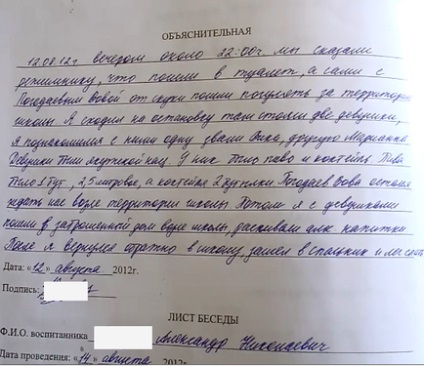 ОБЪЯСНИТЕЛЬНАЯ
12.08.12г. вечером около 22:00г мы сказали
режимнику, что пошли в туалет, а сами с
Погодаевым Вовой от скуки пошли погулять за территорию
школы. Я сходил на остановку там стояли две девушки,
я познакомился с ними одну звали Вика, другую Марианна
Девушки были якутской нац. У них было пиво и коктейль. Пива
было 1 бут, 2,5 литровое, и коктейля 2 бутылки Погодаев Вова остался
ждать нас возле территории школы. Потом я с девушками
пошли в заброшенный дом возле школы, распивали алк. напитки
После я вернулся обратно в школу, зашел в спальник и лег спать
Дата: «12» августа 2012г.
Подпись:
ЛИСТ БЕСЕДЫ
Ф.И.О. воспитанника Александр Николаевич
Дата проведения: «14» августа 2012г